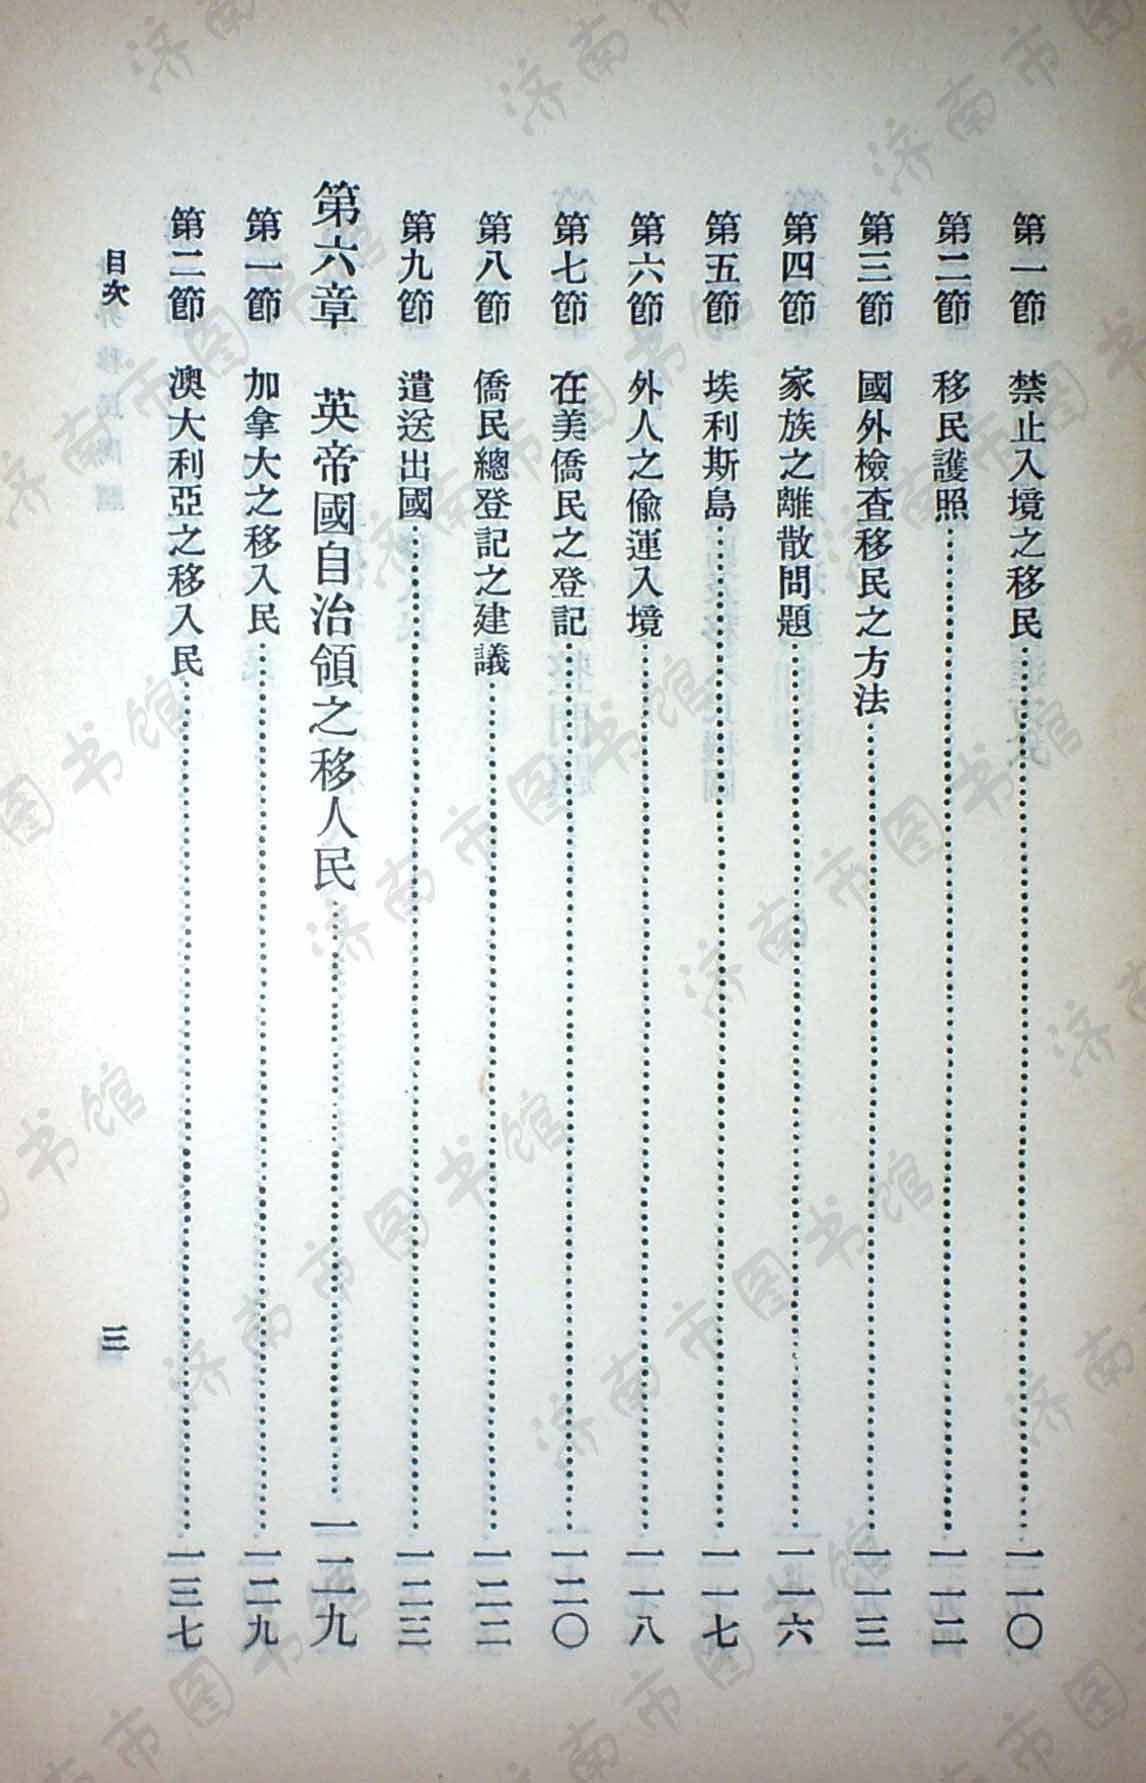 第一節 禁止入境之移民……一一〇
第二節 移民護照……一一二
第三節 國外檢查移民之方法……一一三
第四節 家族之離散問題……一一六
第五節 埃利斯島……一一七
第六節 外人之偷運入境……一一八
第七節 在美僑民之登記……一二〇
第八節 僑民總登記之建議……一二二
第九節 遣送出國……一二三
第六章 英帝國自治領之移人民……一二九
第一節 加拿大之移入民……一二九
第二節 澳大利亞之移入民……一三七
目次 三
济南市图书馆